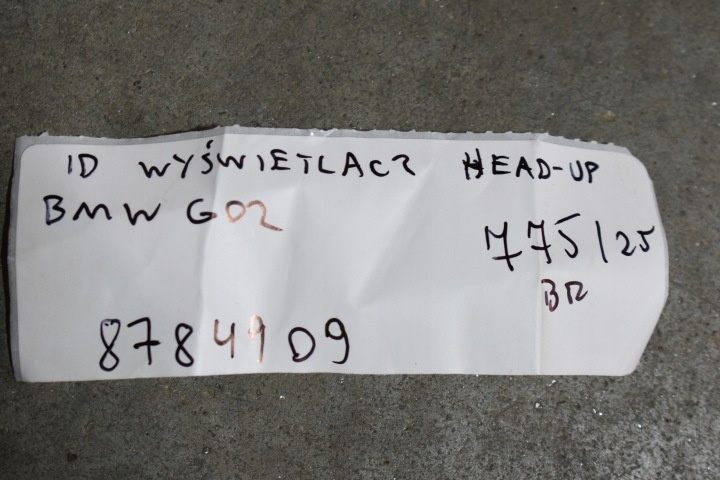 ID WYŚWIETLACZ HEAD-UP
BMW G02
775/25
BR
8784909